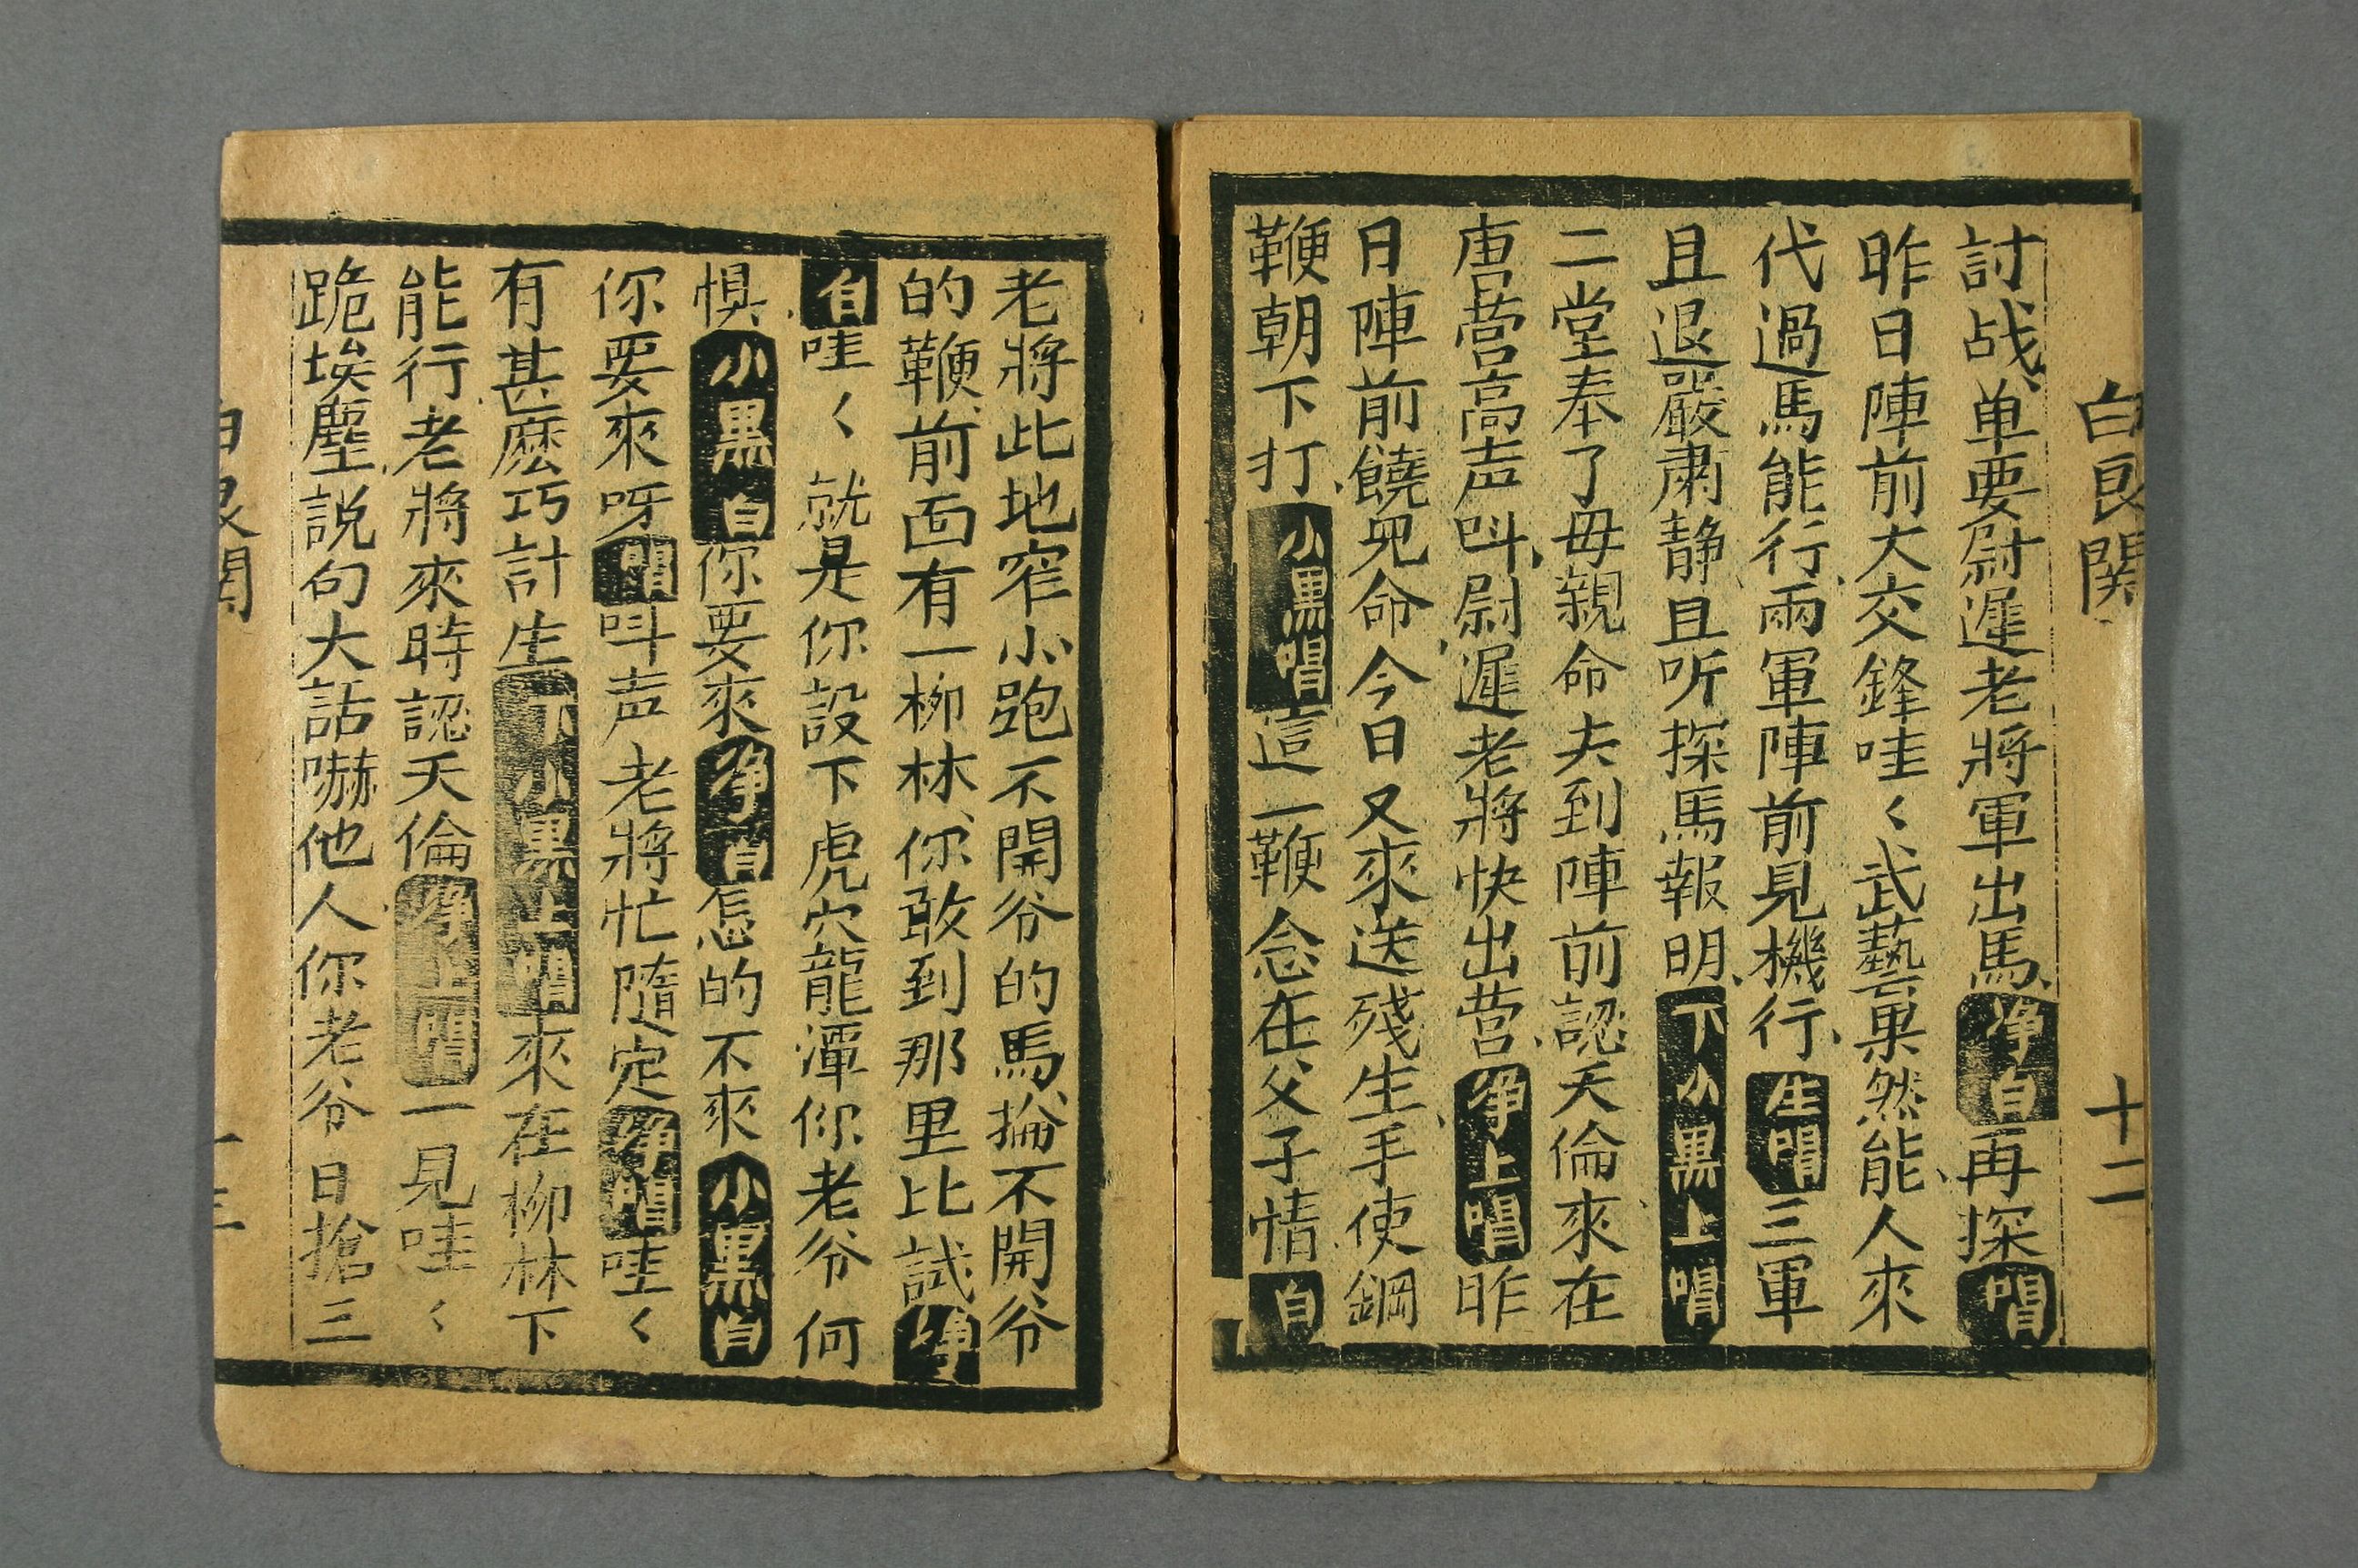 白良関
十二
討战单要尉遲老將軍出馬净白再探唱
昨日陣前大交鋒哇く武藝果然能人來
代過馬能行兩軍陣前見機行生唱三軍
且退嚴肅静且听探馬報明下小黒上唱
二堂奉了毋親命夫到陣前認天倫來在
唐营高声叫尉遲老將快出营净上唱昨
日陣前饒児命今日又來送殘生手使鋼
鞭朝下打小黒唱這一鞭念在父子情白
老將此地窄小跑不開爷的馬掄不開爷
的鞭前面有一柳林你敢到那里比試净
白哇く就是你設下虎穴龍潭你老爷何
惧小黒白你要來净白怎的不來小黒白
你要來呀唱叫声老將忙隨定净唱哇く
有甚麽巧計生下小黒上唱來在柳林下
能行老將來時認天倫净上唱一見哇く
跪埃塵説句大話嚇他人你老爷日搶三
白良関
十三